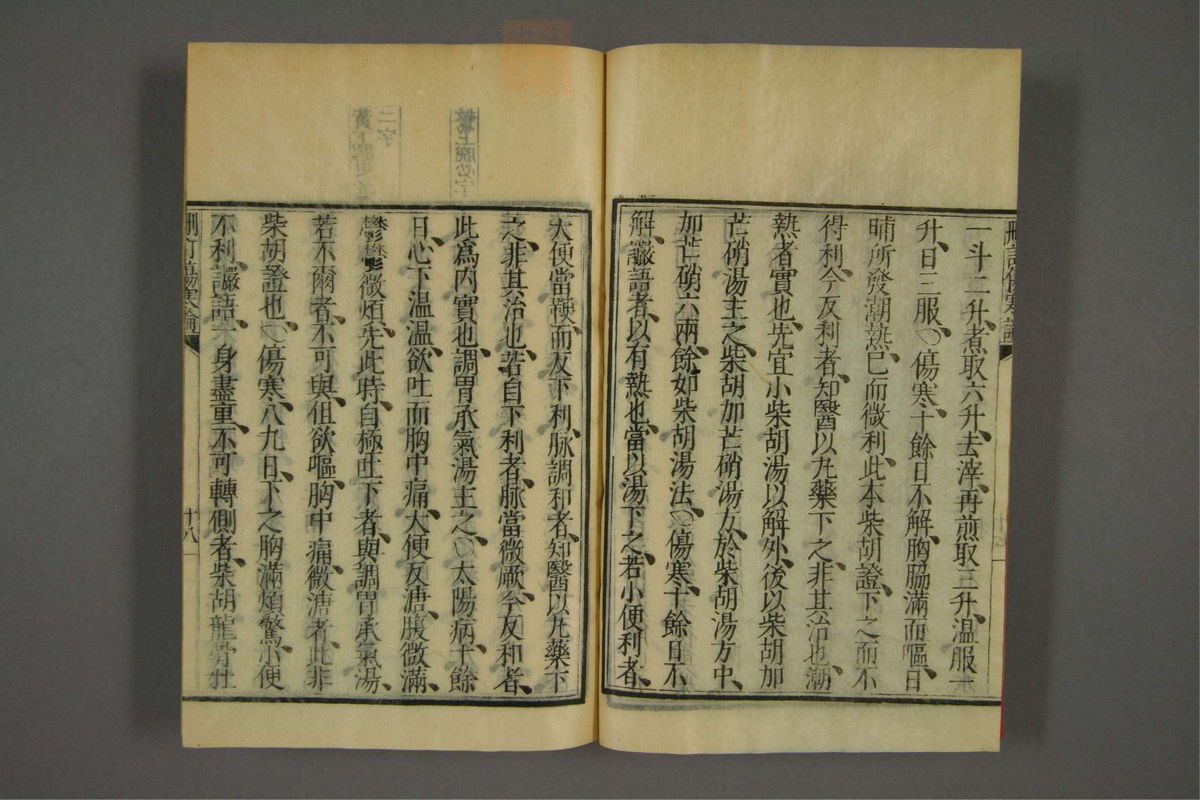 刪訂傷寒論
一斗二升、煮取六升、去滓、再煎取三升、溫服一
升、日三服、○傷寒、十餘日不解、胸脇滿而嘔、日
晡所發潮熱、已而微利、此本柴胡證、下之而不
得利、今反利者、知醫以丸藥下之、非其治也、潮
熱者實也、先宜小柴胡湯以解外、後以柴胡加
芒硝湯主之、柴胡加芒硝湯方、於柴胡湯方中、
加芒硝六兩、餘如柴胡湯法、○傷寒、十餘日不
解、讝語者、以有熱也、當以湯下之、若小便利者、
大便當鞕、而反下利、脈調和者、知醫以丸藥下
之、非其治也、若自下利者、脈當微厥、今反和者、
此爲內實也、調胃承氣湯主之、○太陽病、十餘
日、心下溫溫欲吐、而胸中痛、大便反溏、腹微滿、
鬱鬱微煩、先此時、自極吐下者、與調胃承氣湯、
若不爾者、不可與、但欲嘔、胸中痛、微溏者、此非
柴胡證也、○傷寒、八九日、下之、胸滿煩驚、小便
不利、讝語、一身盡重、不可轉側者、柴胡龍骨牡
刪訂傷寒論
十八